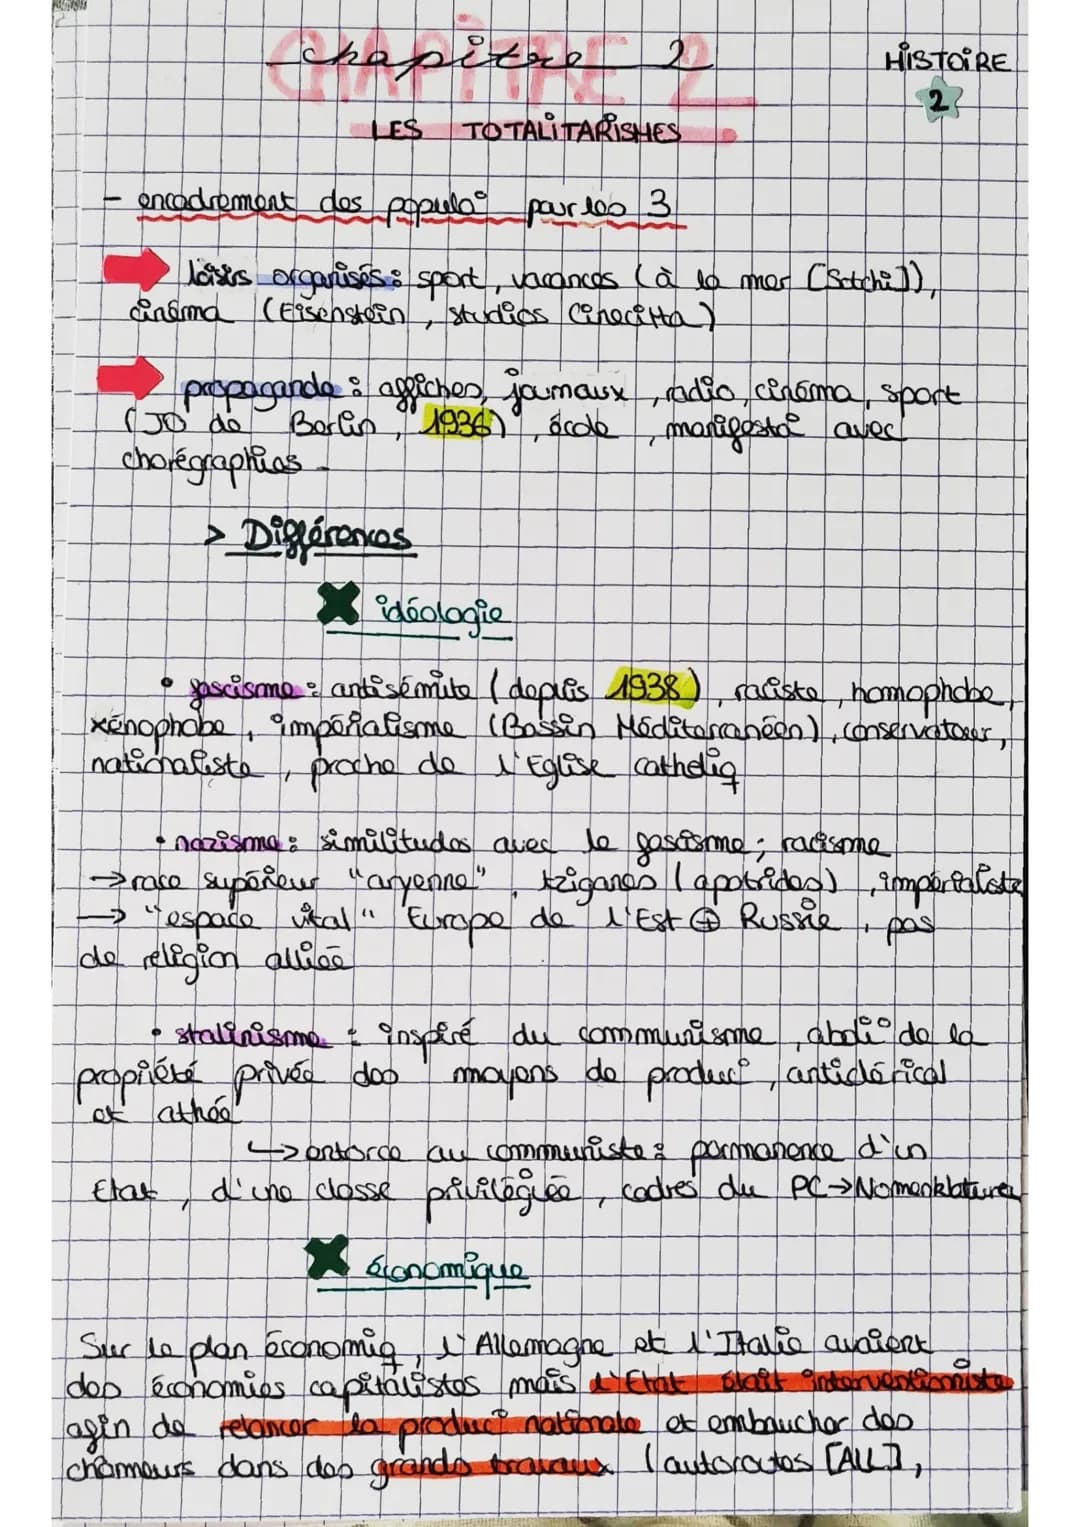 CHAPITRE 2
chapitre 2
HISTOIRE
2
LES TOTALITARISMES
- encadrement des popula° par les 3
loisirs organisés : sport, vacances (à la mer [Sotchi]),
cinéma (Eisenstein, studios Cinecitta)
propagande : affiches, journaux, radio, cinéma, sport
(JO de Berlin, 1936), école, manifesta° avec
chorégraphies.
> Différences
idéologie
• fascisme : antisémite (depuis 1938), raciste, homophobe,
xénophobe, impérialisme (Bassin Méditerranéen), conservateur,
nationaliste, proche de l'Eglise catholiq
• nazisme : similitudes avec le fascisme ; racisme
→ race supérieur "aryenne", tziganes (apatrides), impérialiste
→ "espace vital" Europe de l'Est ⊕ Russie, pas
de religion alliée
• stalinisme : inspiré du communisme, aboli° de la
propriété privée des moyens de produc°, anticlérical
et athée
↳ entorce au communiste : permanence d'un
Etat, d'une classe privilégiée, cadres du PC → Nomenklatura
économique
Sur le plan économiq, l'Allemagne et l'Italie avaient
des économies capitalistes mais l'Etat était interventionniste
afin de relancer la produc° nationale et embaucher des
chômeurs dans des grands travaux (autoroutes [ALL],